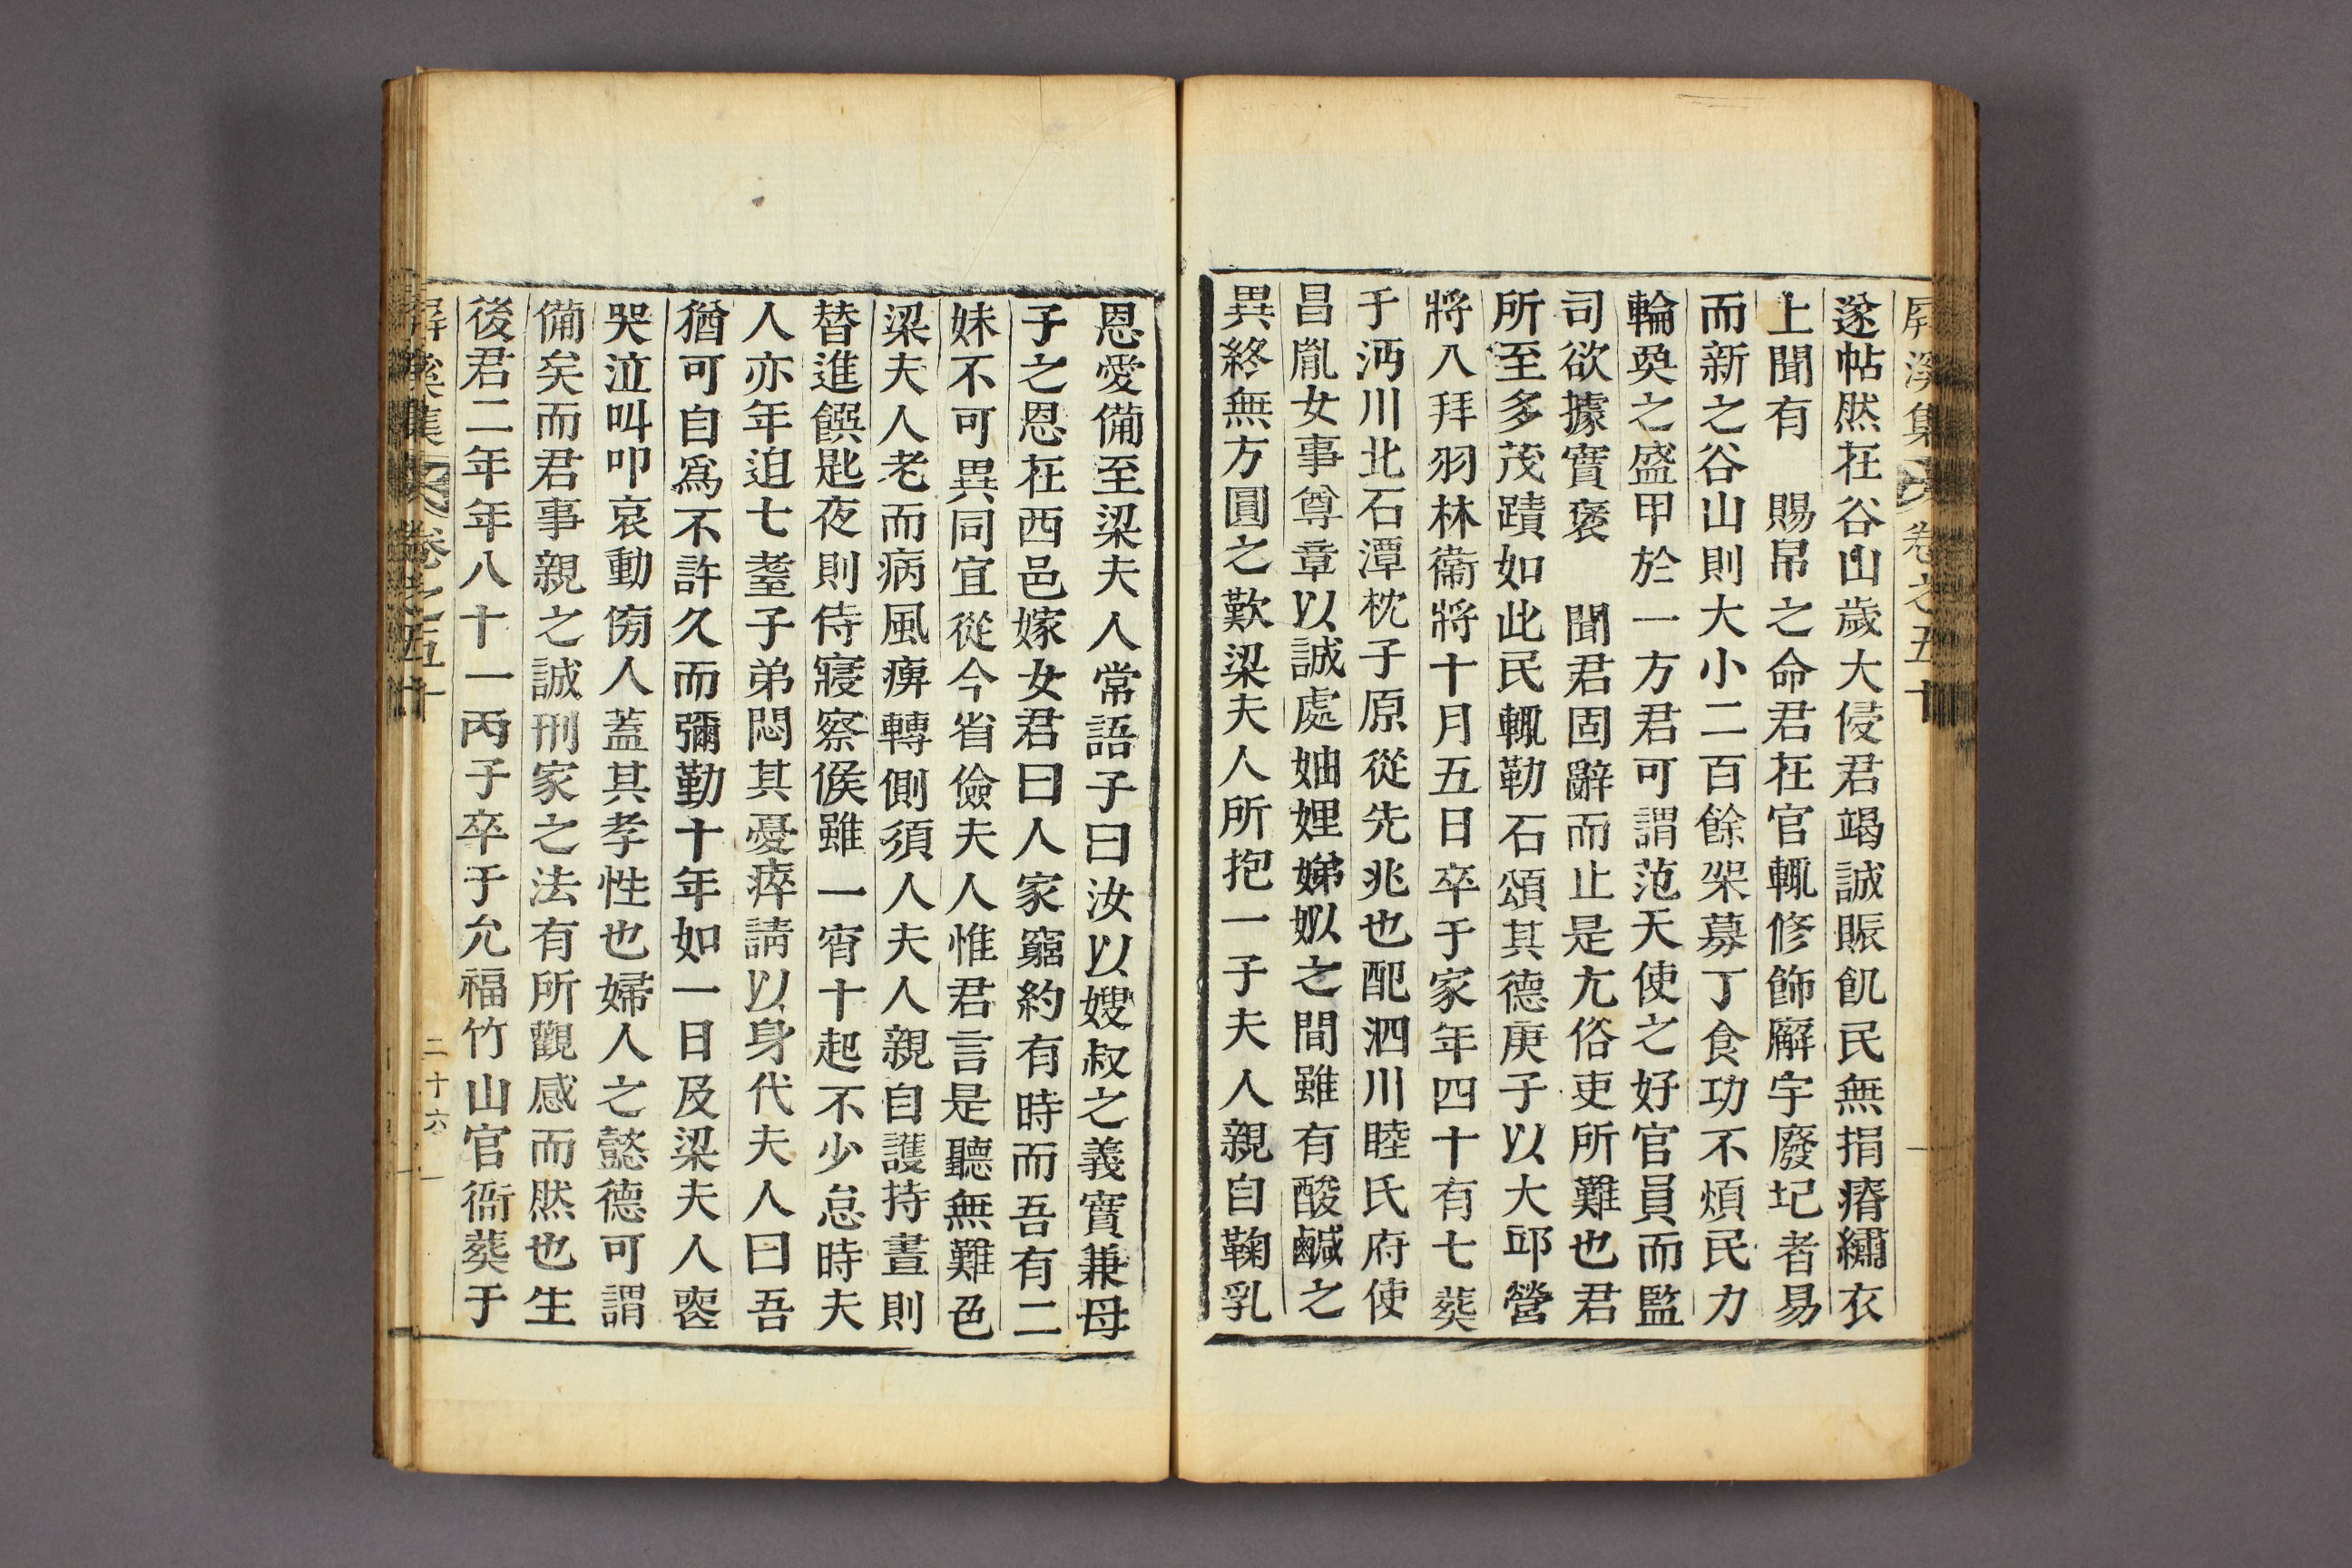 屛溪集 卷之五十
遂帖然在谷山歲大侵君竭誠賑飢民無捐瘠繡衣
上聞有 賜帛之命君在官輒修飾廨宇廢圮者易
而新之谷山則大小二百餘架募丁食功不煩民力
輪奐之盛甲於一方君可謂范天使之好官員而監
司欲據實褒 聞君固辭而止是尤俗吏所難也君
所至多茂蹟如此民輒勒石頌其德庚子以大邱營
將入拜羽林衞將十月五日卒于家年四十有七葬
于沔川北石潭枕子原從先兆也配泗川睦氏府使
昌胤女事尊章以誠處妯娌娣姒之間雖有酸鹹之
異終無方圓之歎梁夫人所抱一子夫人親自鞠乳
恩愛備至梁夫人常語子曰汝以嫂叔之義實兼母
子之恩在西邑嫁女君曰人家窮約有時而吾有二
妹不可異同宜從今省儉夫人惟君言是聽無難色
梁夫人老而病風痹轉側須人夫人親自護持晝則
替進饌匙夜則侍寢察候雖一宵十起不少怠時夫
人亦年迫七耋子弟悶其憂瘁請以身代夫人曰吾
猶可自爲不許久而彌勤十年如一日及梁夫人喪
哭泣叫叩哀動傍人蓋其孝性也婦人之懿德可謂
備矣而君事親之誠刑家之法有所觀感而然也生
後君二年年八十一丙子卒于允福竹山官衙葬于
屛溪集 卷之五十 二十六